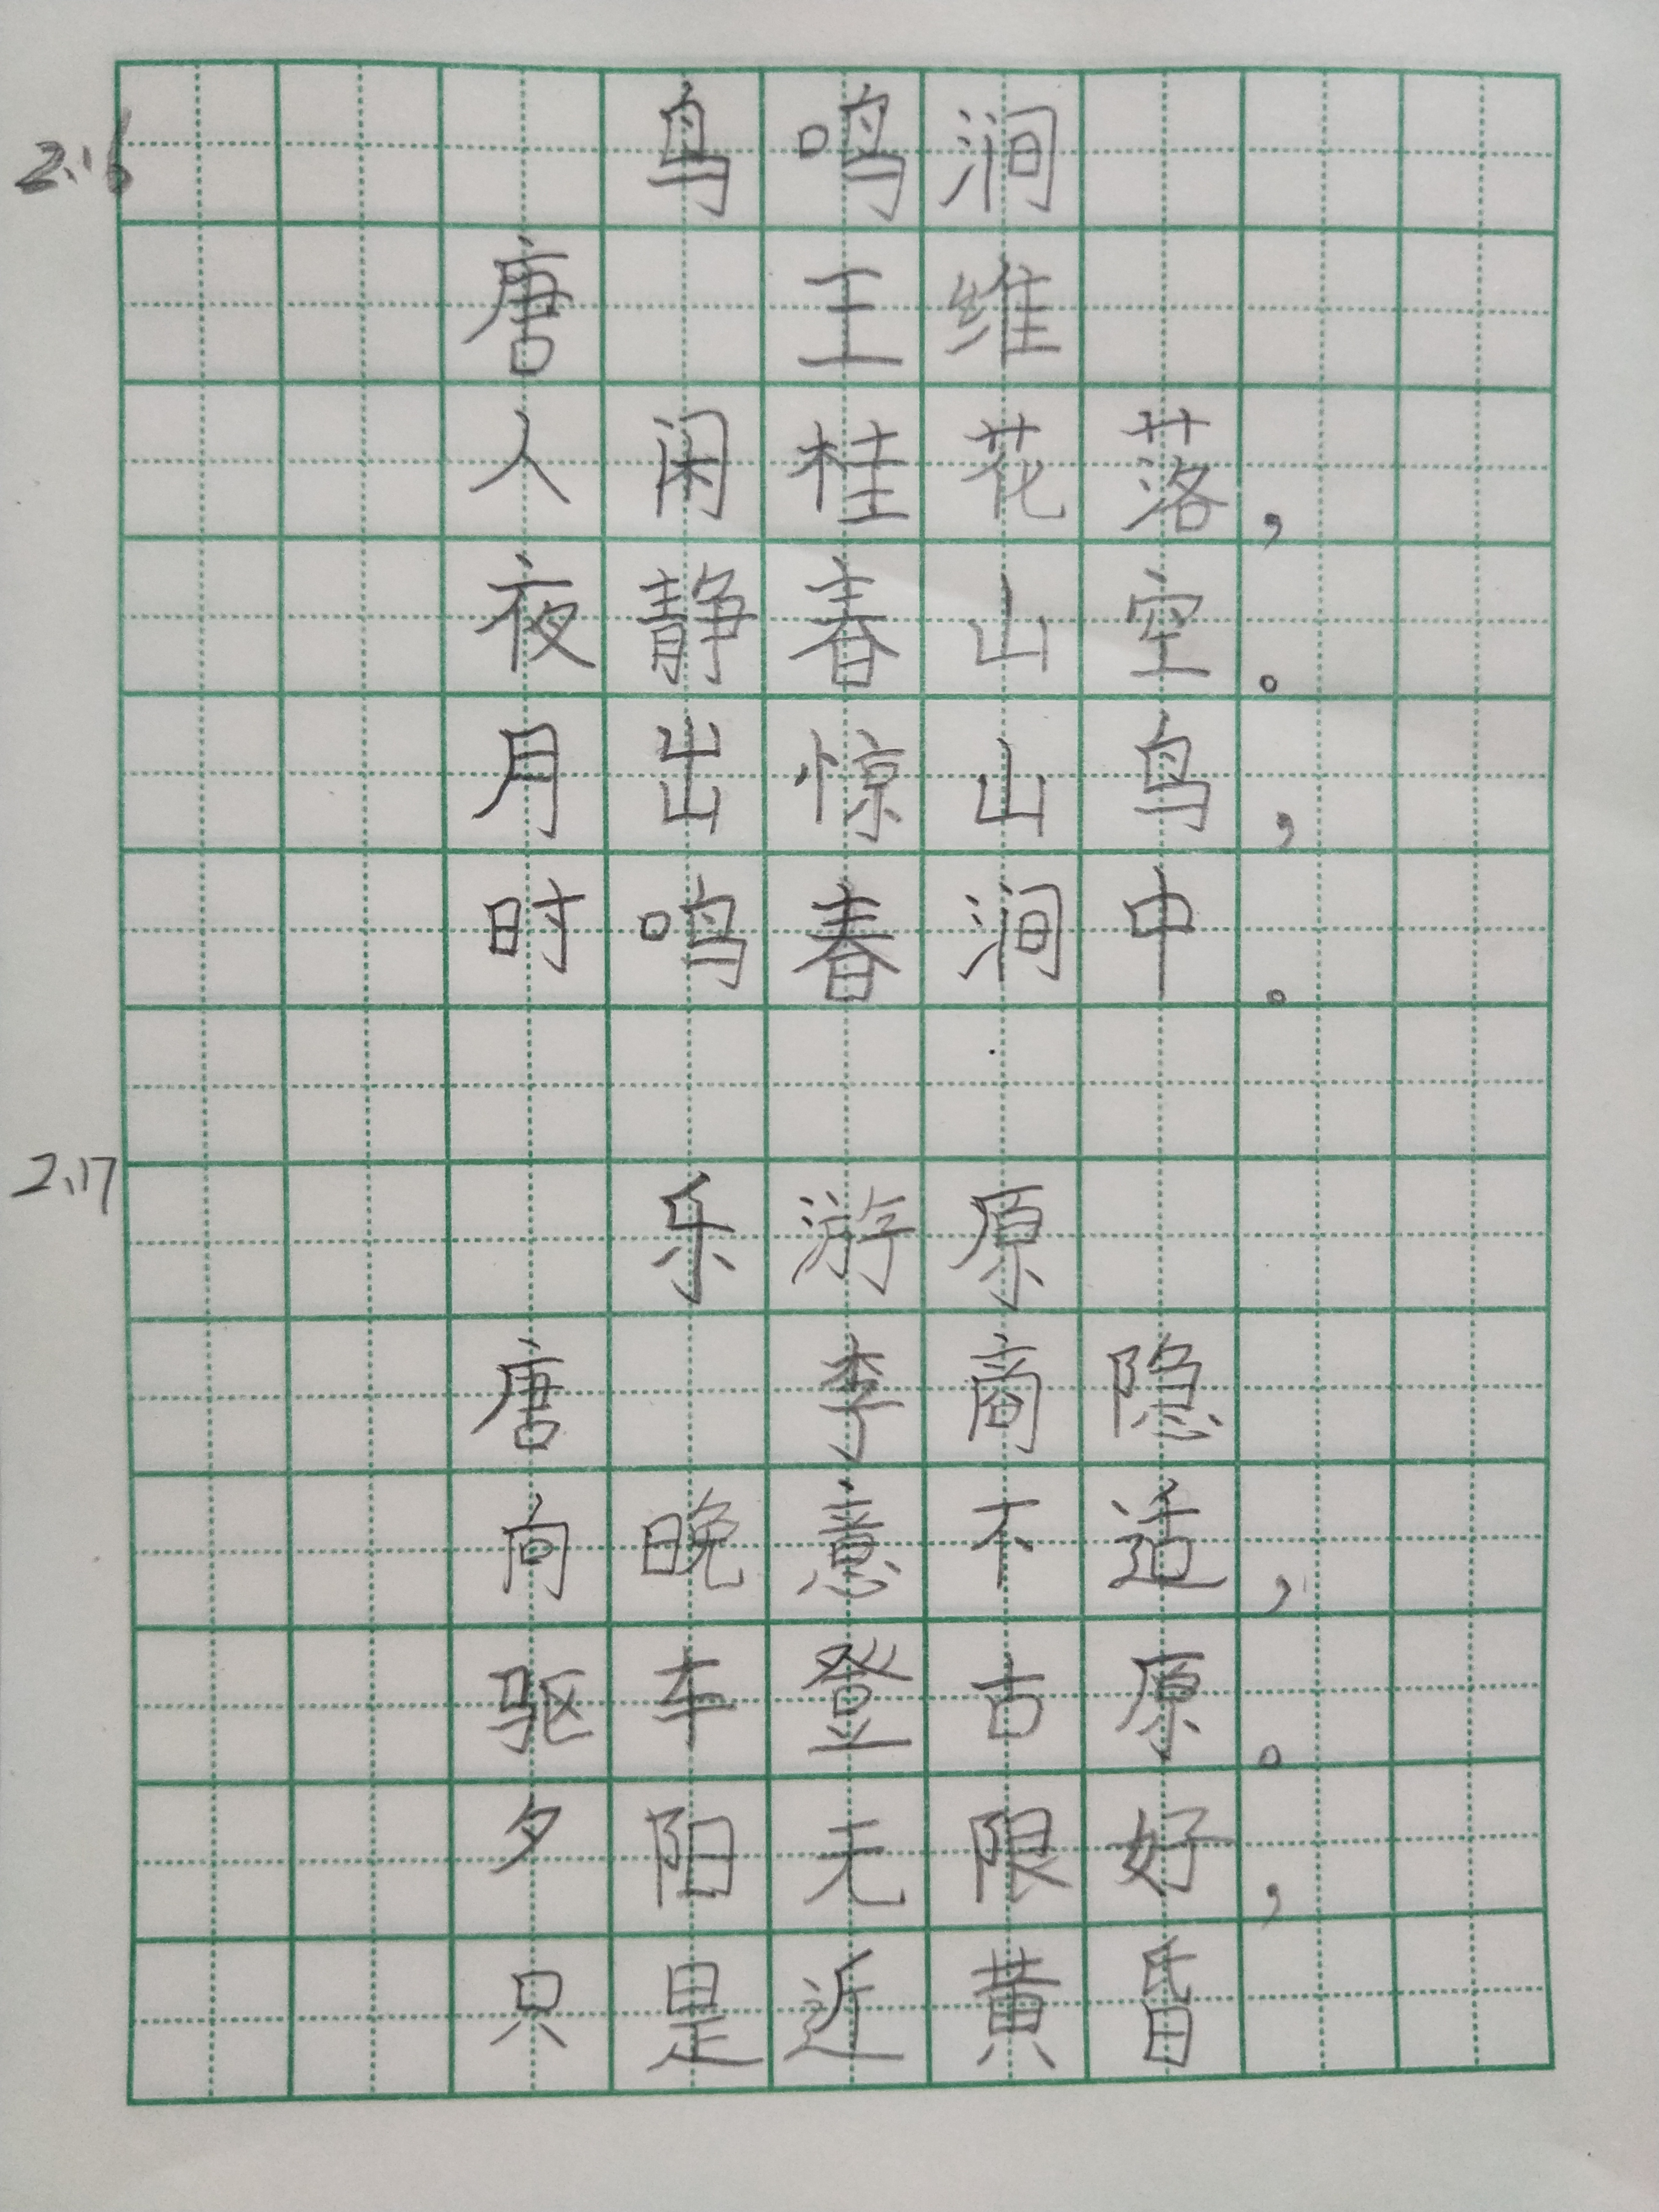 2.16 鸟鸣涧
唐 王维
人闲桂花落，
夜静春山空。
月出惊山鸟，
时鸣春涧中。
2.17 乐游原
唐 李商隐
向晚意不适，
驱车登古原。
夕阳无限好，
只是近黄昏